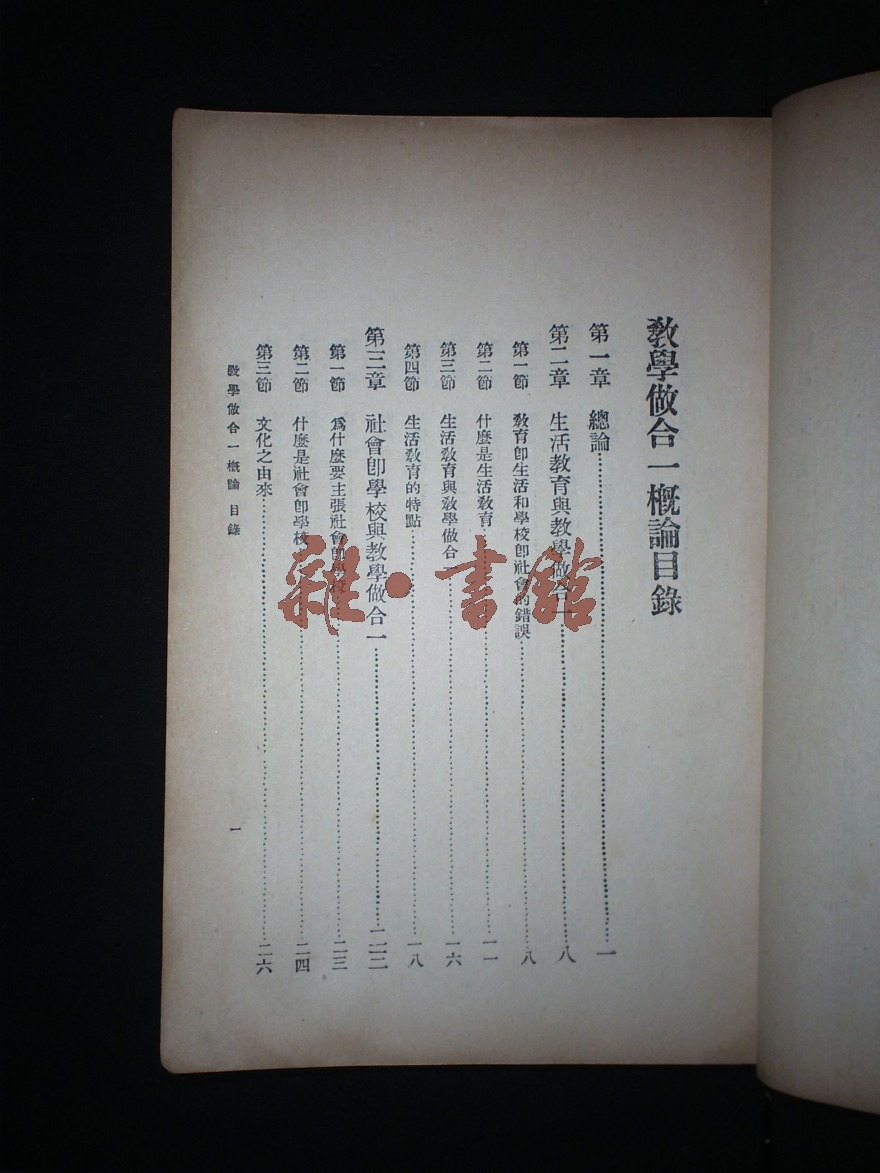 教學做合一槪論目錄
第一章　總論…………一
第二章　生活教育與教學做合一…………八
第一節　教育卽生活和學校卽社會的錯誤…………八
第二節　什麼是生活教育…………一一
第三節　生活教育與教學做合一…………一六
第四節　生活教育的特點…………一八
第三章　社會卽學校與教學做合一…………二三
第一節　爲什麼要主張社會卽學校…………二三
第二節　什麼是社會卽學校…………二四
第三節　文化之由來…………二六
教學做合一槪論　目錄
一
雜·書館